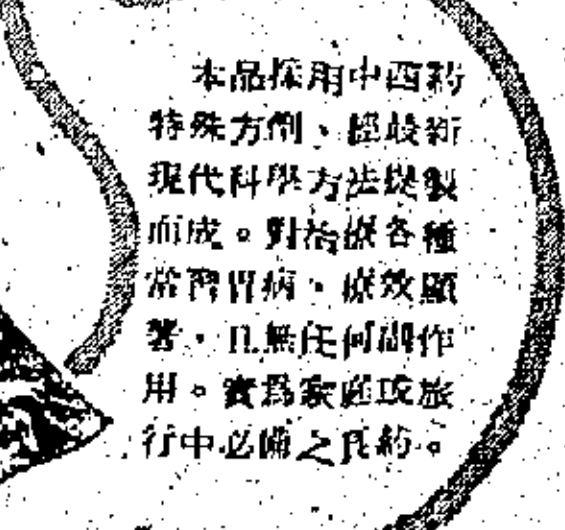 本品採用中西葯
特殊方劑、經最新
現代科學方法提製
而成。對治療各種
常習胃病、療效顯
著，且無任何副作
用。實爲家庭或旅
行中必備之良葯。